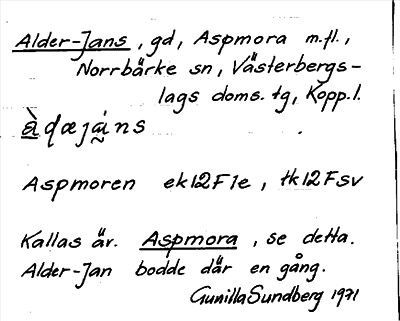 Alder-Jans, gd, Aspmora m.fl.,
Norrbärke sn, Västerbergs-
lags doms. tg, Kopp.l.
Aspmoren ek12F1e, tk12Fsv
Kallas är. Aspmora, se detta.
Alder-Jan bodde där en gång.
Gunilla Sundberg 1971